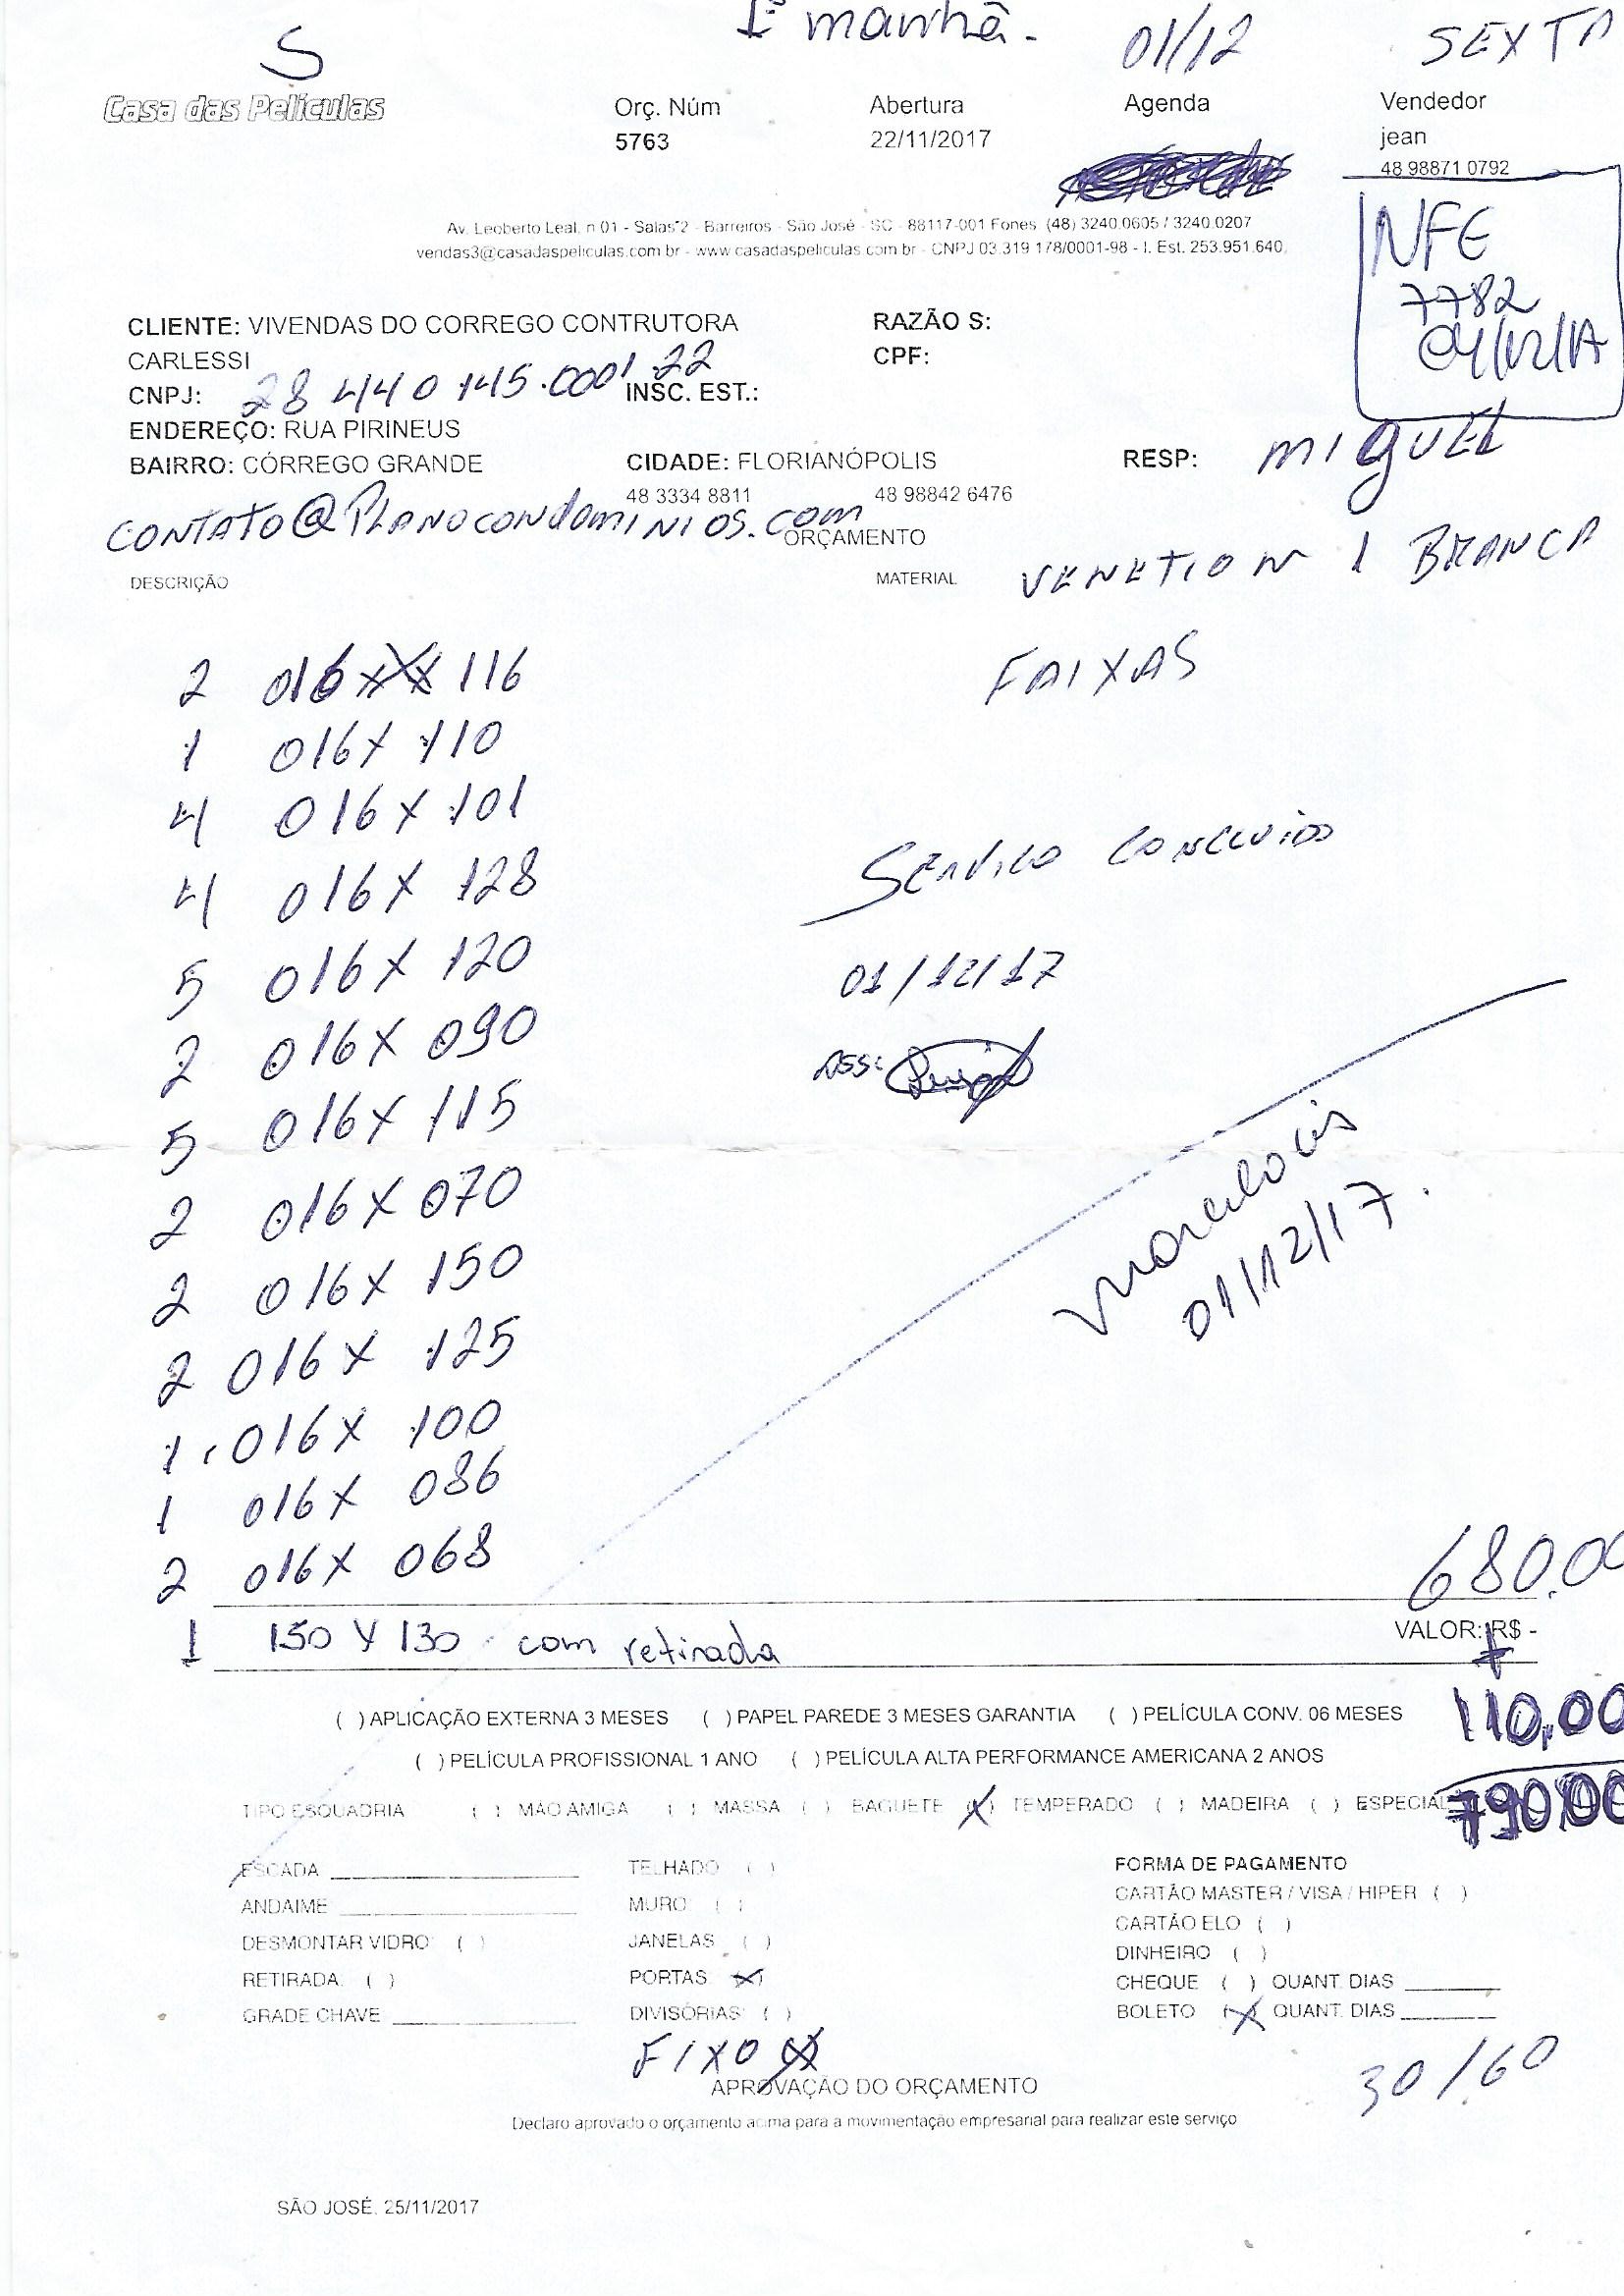 1º manhã. 01/12 SEXTA
S
Casa das Películas
Orç. Núm Abertura Agenda Vendedor
5763 22/11/2017 jean
48 98871 0792
Av. Leoberto Leal, n 01 - Salas 2 - Barreiros - São José - SC - 88117-001 Fones (48) 3240.0605 / 3240.0207
vendas3@casadaspeliculas.com.br - www.casadaspeliculas.com.br - CNPJ 03.319.178/0001-98 - I. Est. 253.951.640.
NFE
7782
04/12/17
CLIENTE: VIVENDAS DO CORREGO CONTRUTORA RAZÃO S:
CARLESSI CPF:
CNPJ: 28 440 145.0001.22 INSC. EST.:
ENDEREÇO: RUA PIRINEUS
BAIRRO: CÓRREGO GRANDE CIDADE: FLORIANÓPOLIS RESP: MIGUEL
48 3334 8811 48 98842 6476
CONTATO@PLANOCONDOMINIOS.COM
ORÇAMENTO
DESCRIÇÃO MATERIAL VENETION 1 BRANCA
2 016 X 116 FAIXAS
1 016 X 110
4 016 X 101
4 016 X 128 SERVICO CONCLUIDO
5 016 X 120 01/12/17
2 016 X 090
5 016 X 115 ASS:
2 016 X 070
2 016 X 150 01/12/17.
2 016 X 125
1 016 X 100
1 016 X 086
2 016 X 068 680.00
1 150 X 130 com retirada VALOR: R$ -
+
110,00
( ) APLICAÇÃO EXTERNA 3 MESES ( ) PAPEL PAREDE 3 MESES GARANTIA ( ) PELÍCULA CONV. 06 MESES
( ) PELÍCULA PROFISSIONAL 1 ANO ( ) PELÍCULA ALTA PERFORMANCE AMERICANA 2 ANOS
790,00
TIPO ESQUADRIA ( ) MÃO AMIGA ( ) MASSA ( ) BAGUETE (X) TEMPERADO ( ) MADEIRA ( ) ESPECIAL
ESCADA ____ TELHADO ( ) FORMA DE PAGAMENTO
ANDAIME ____ MURO ( ) CARTÃO MASTER / VISA / HIPER ( )
DESMONTAR VIDRO ( ) JANELAS ( ) CARTÃO ELO ( )
DINHEIRO ( )
RETIRADA: ( ) PORTAS (X) CHEQUE ( ) QUANT. DIAS ____
GRADE CHAVE ____ DIVISÓRIAS ( ) BOLETO (X) QUANT. DIAS ____
FIXO (X) 30/60
APROVAÇÃO DO ORÇAMENTO
Declaro aprovado o orçamento acima para a movimentação empresarial para realizar este serviço
SÃO JOSÉ, 25/11/2017